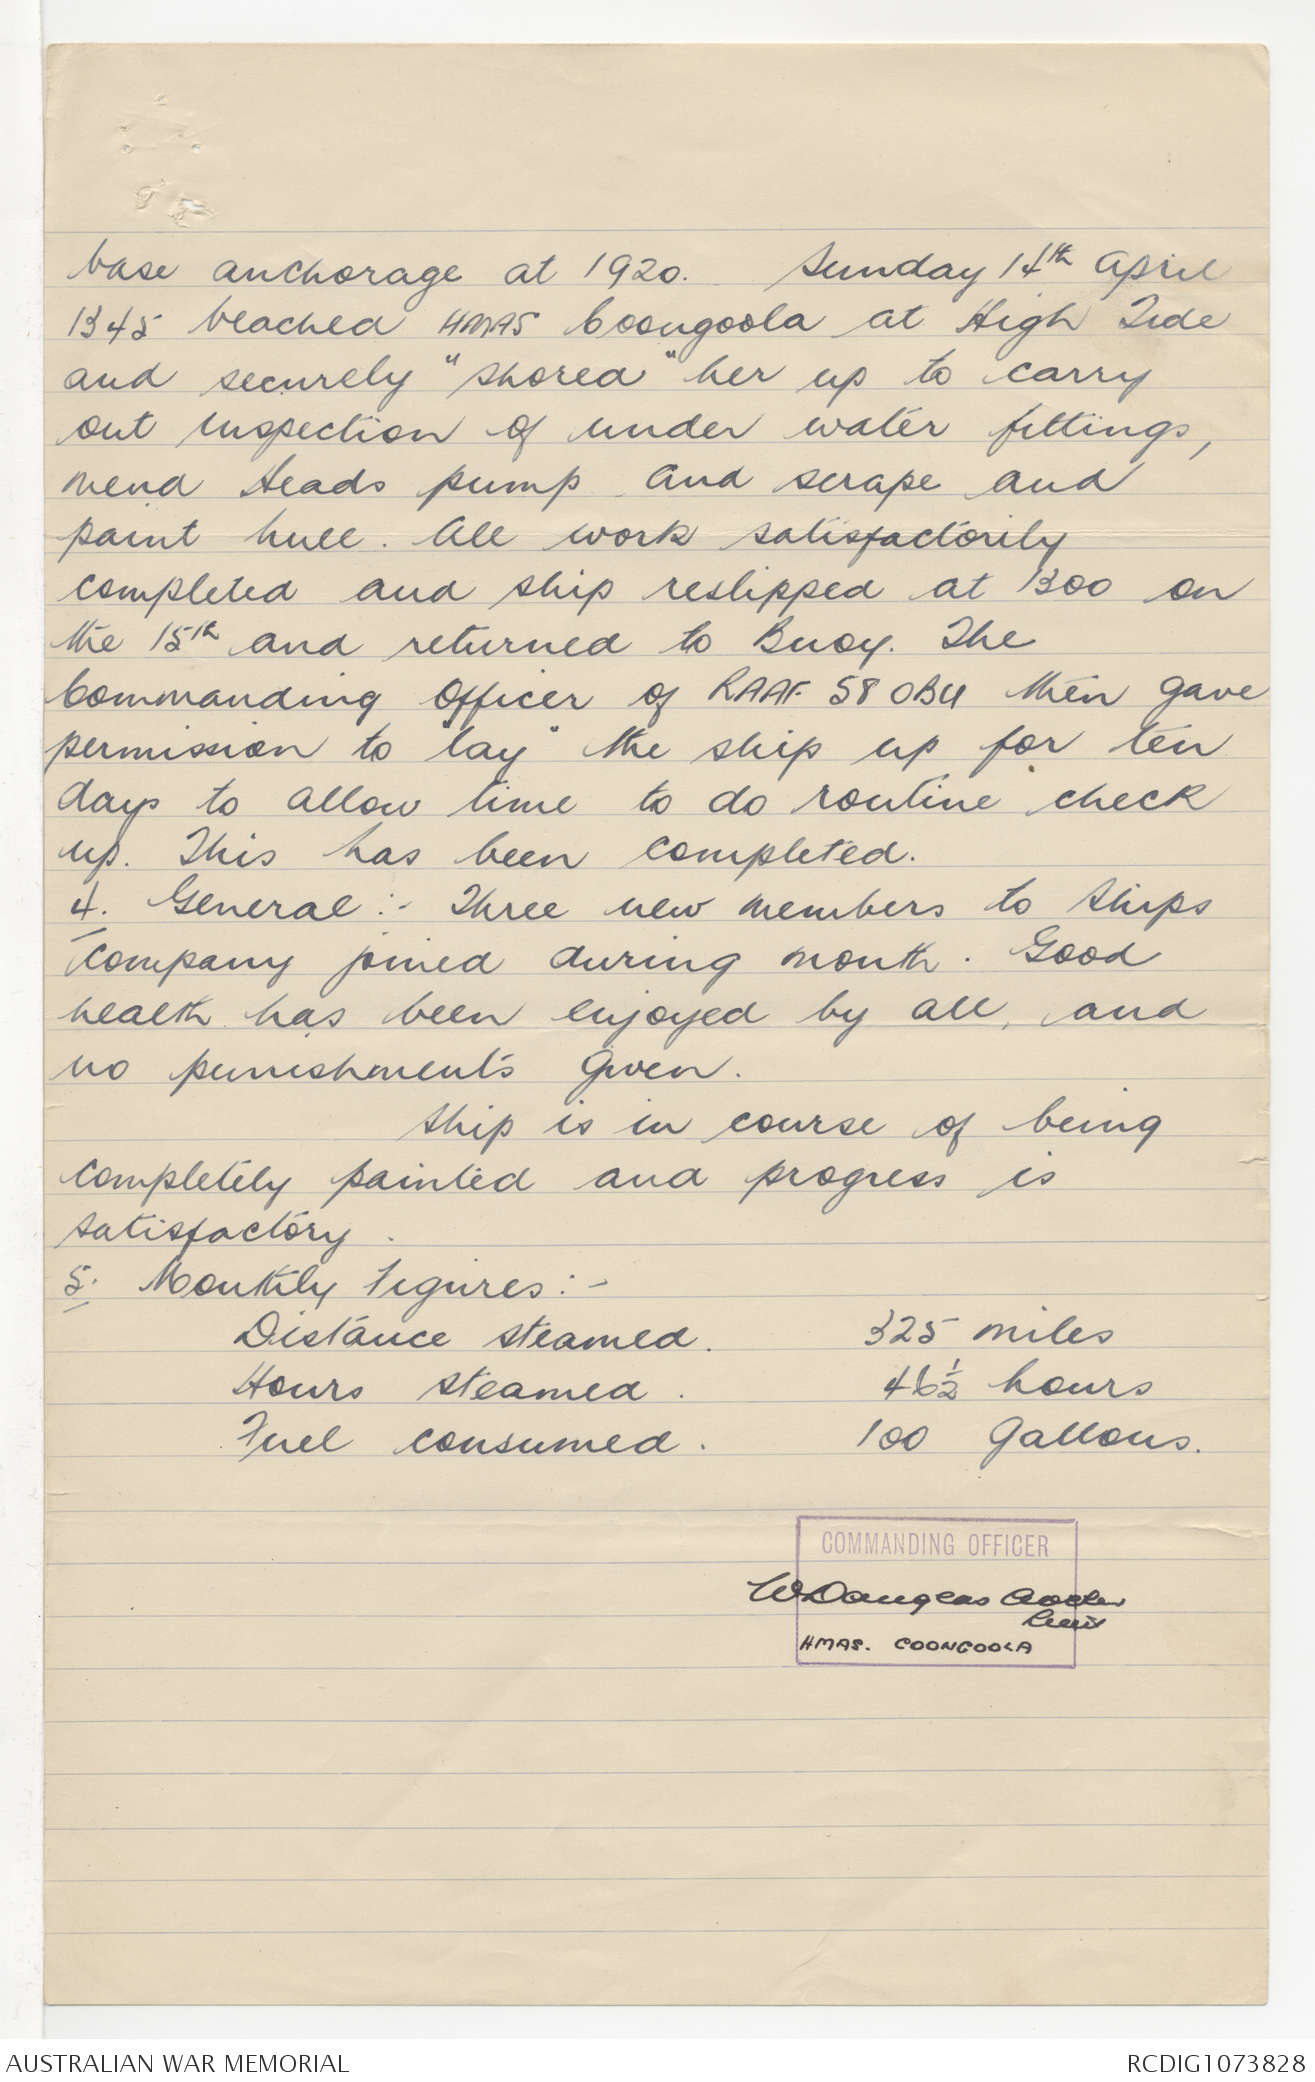 base anchorage at 1920. Sunday 14th April
1345 beached HMAS Coongoola at High Tide
and securely "shored" her up to carry
out inspection of under water fittings,
mend Heads pump and scrape and
paint hull. All work satisfactorily
completed and ship reslipped at 1300 on
the 15th and returned to Buoy. The
Commanding Officer of RAAF 58 OBU then gave
permission to "lay" the ship up for ten
days to allow time to do routine check
up. This has been completed.
4. General :- Three new members to Ships
Company joined during month. Good
health has been enjoyed by all, and
no punishments given.
Ship is in course of being
completely painted and progress is
satisfactory.
5. Monthly Figures :-
Distance steamed. 325 miles
Hours steamed. 46½ hours
Fuel consumed. 100 Gallons.
COMMANDING OFFICER
W Douglas
HMAS. COONGOOLA
AUSTRALIAN WAR MEMORIAL RCDIG1073828